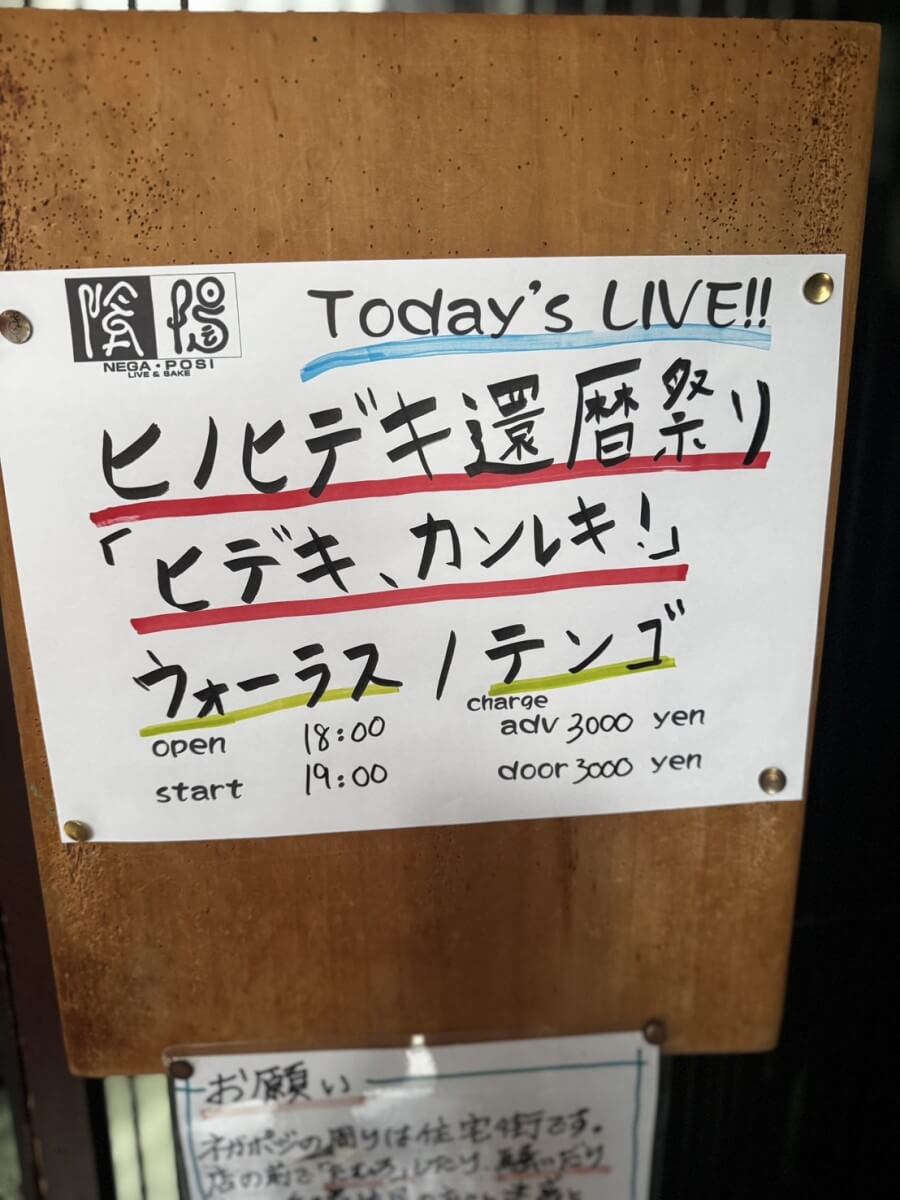 陰陽
NEGA・POSI
LIVE & SAKE
Today's LIVE!!
ヒノヒデキ還暦祭り
「ヒデキ、カンレキ!」
ウォーラス / テンゴ
open 18:00
start 19:00
charge
adv 3000 yen
door 3000 yen
お願い
ネガポジの周りは住宅街です。
店の前で「たむろ」したり、騒いだり